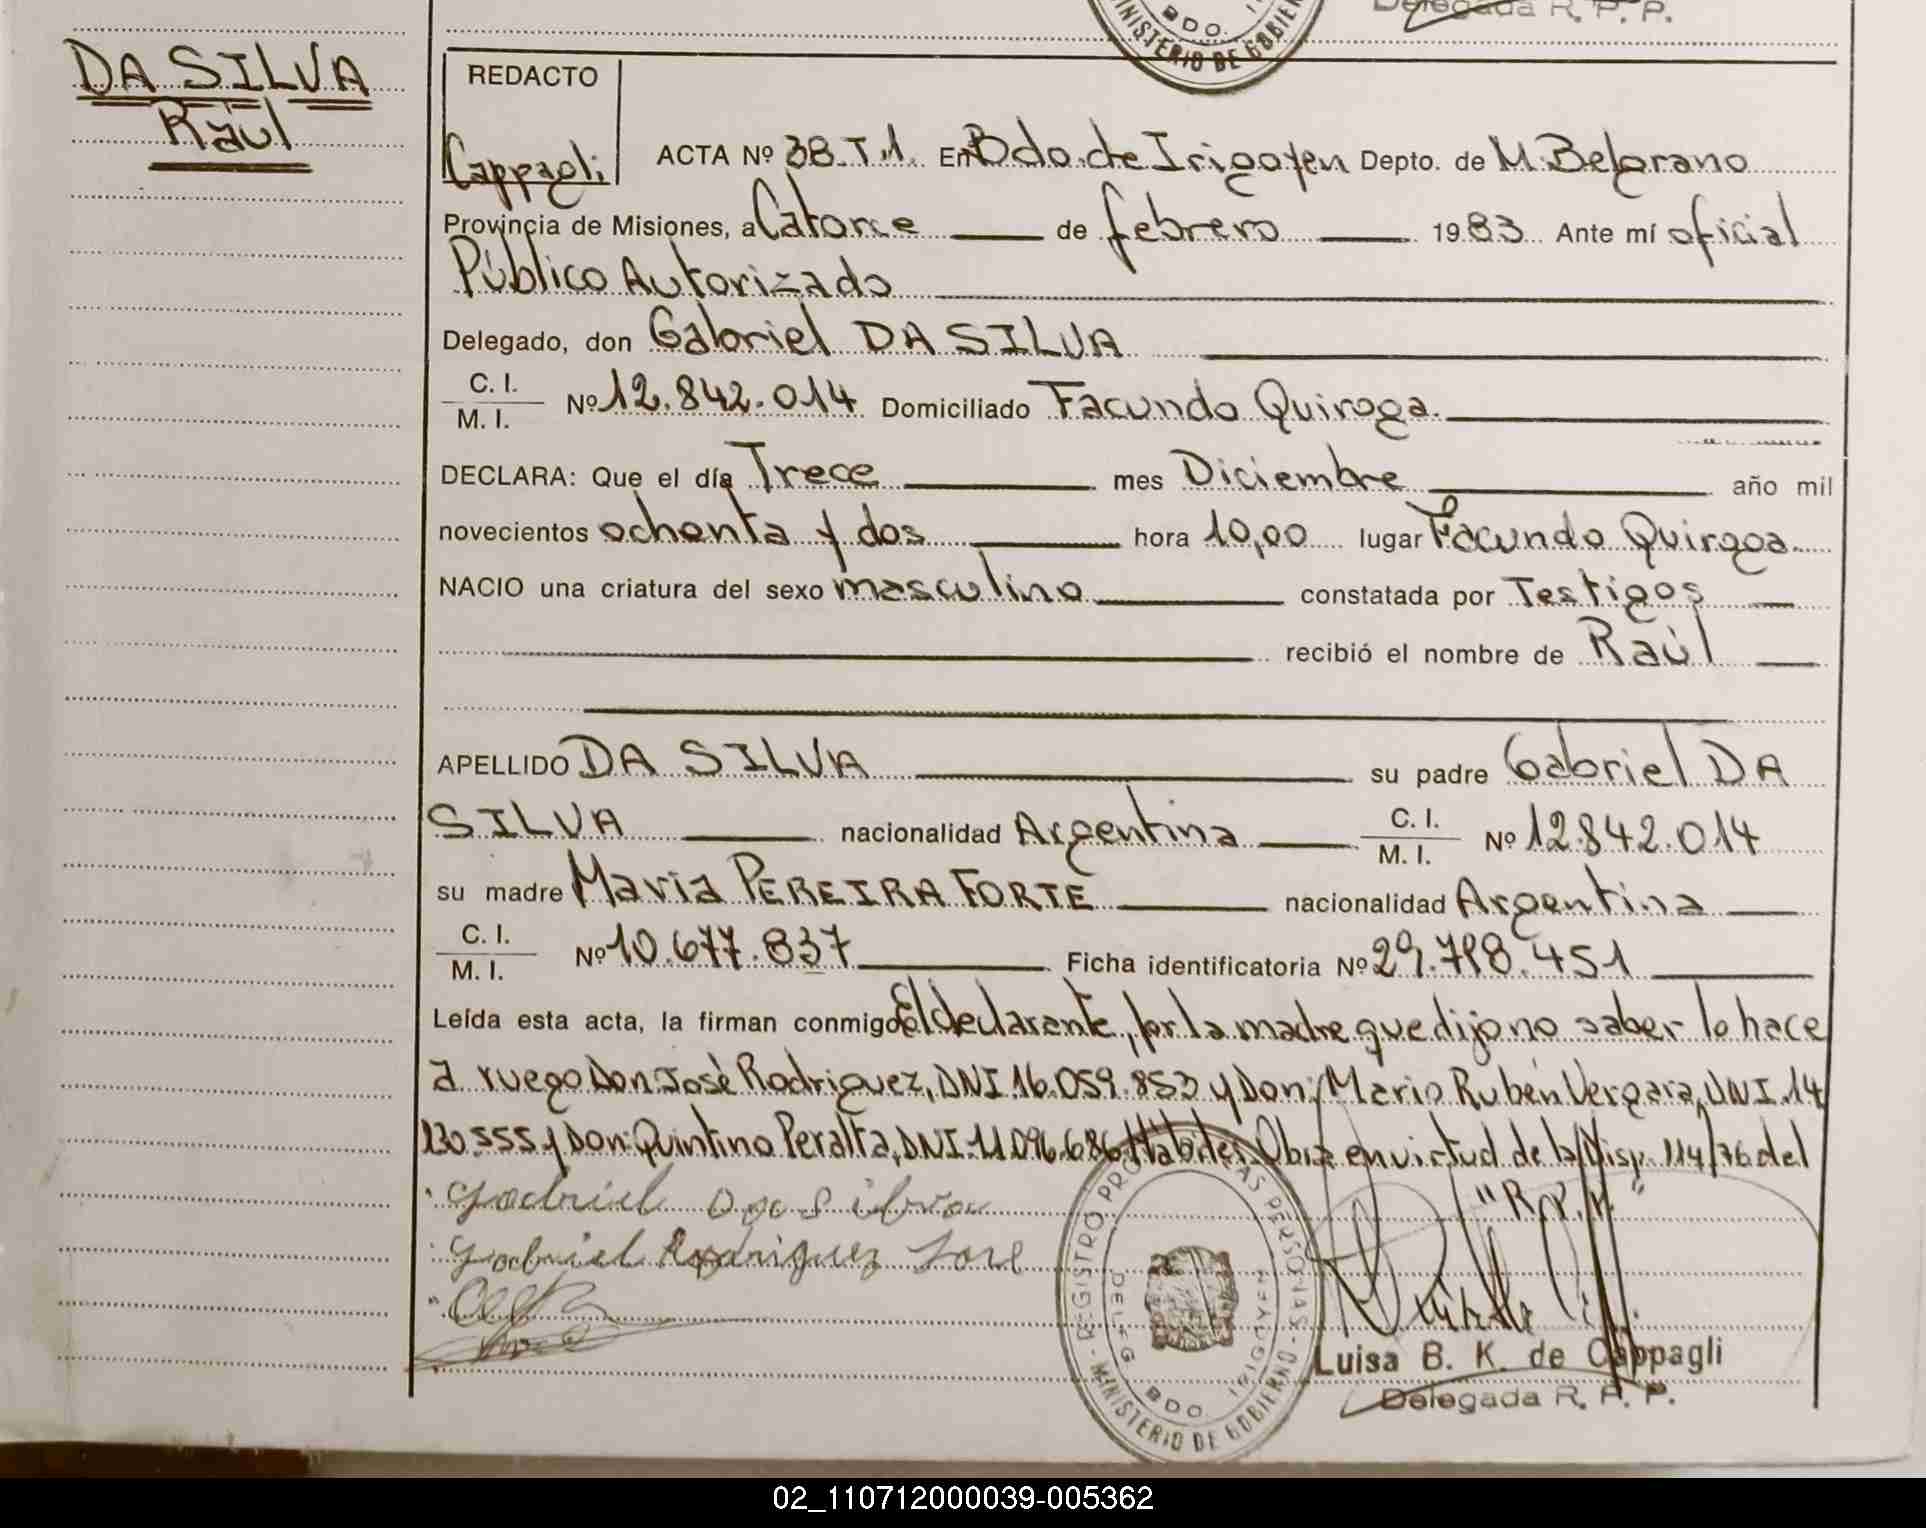 Delegada R. P. P.
BDO.
MINISTERIO DE GOBIERNO
DA SILVA
Raúl
REDACTO
Cappagli
ACTA Nº 38. T.1. En Bdo. de Irigoyen Depto. de M. Belgrano
Provincia de Misiones, a Catorce de febrero 1983 Ante mí oficial
Público Autorizado
Delegado, don Gabriel DA SILVA
C. I. / M. I. Nº 12.842.014 Domiciliado Facundo Quiroga.
DECLARA: Que el día Trece mes Diciembre año mil
novecientos ochenta y dos hora 10,00 lugar Facundo Quiroga.
NACIO una criatura del sexo masculino constatada por Testigos
recibió el nombre de Raúl
APELLIDO DA SILVA su padre Gabriel DA
SILVA nacionalidad Argentina C. I. / M. I. Nº 12.842.014
su madre Maria PEREIRA FORTE nacionalidad Argentina
C. I. / M. I. Nº 10.677.837 Ficha identificatoria Nº 29.798.451
Leída esta acta, la firman conmigo El declarante, por la madre que dijo no saber lo hace
a ruego Don: José Rodriguez, DNI. 16.059.853 y Don: Mario Rubén Vergara, DNI. 14
230.555 y Don: Quintino Peralta, DNI. 11.096.686 Habiles. Obra en virtud de la Disp. 114/76 del
"R.P.P."
Gabriel Da Silva
Gabriel Rodriguez Jose
REGISTRO PROVINCIAL DE LAS PERSONAS - MINISTERIO DE GOBIERNO -
DELEG. BDO. IRIGOYEN
Luisa B. K. de Cappagli
Delegada R. P. P.
02_110712000039-005362